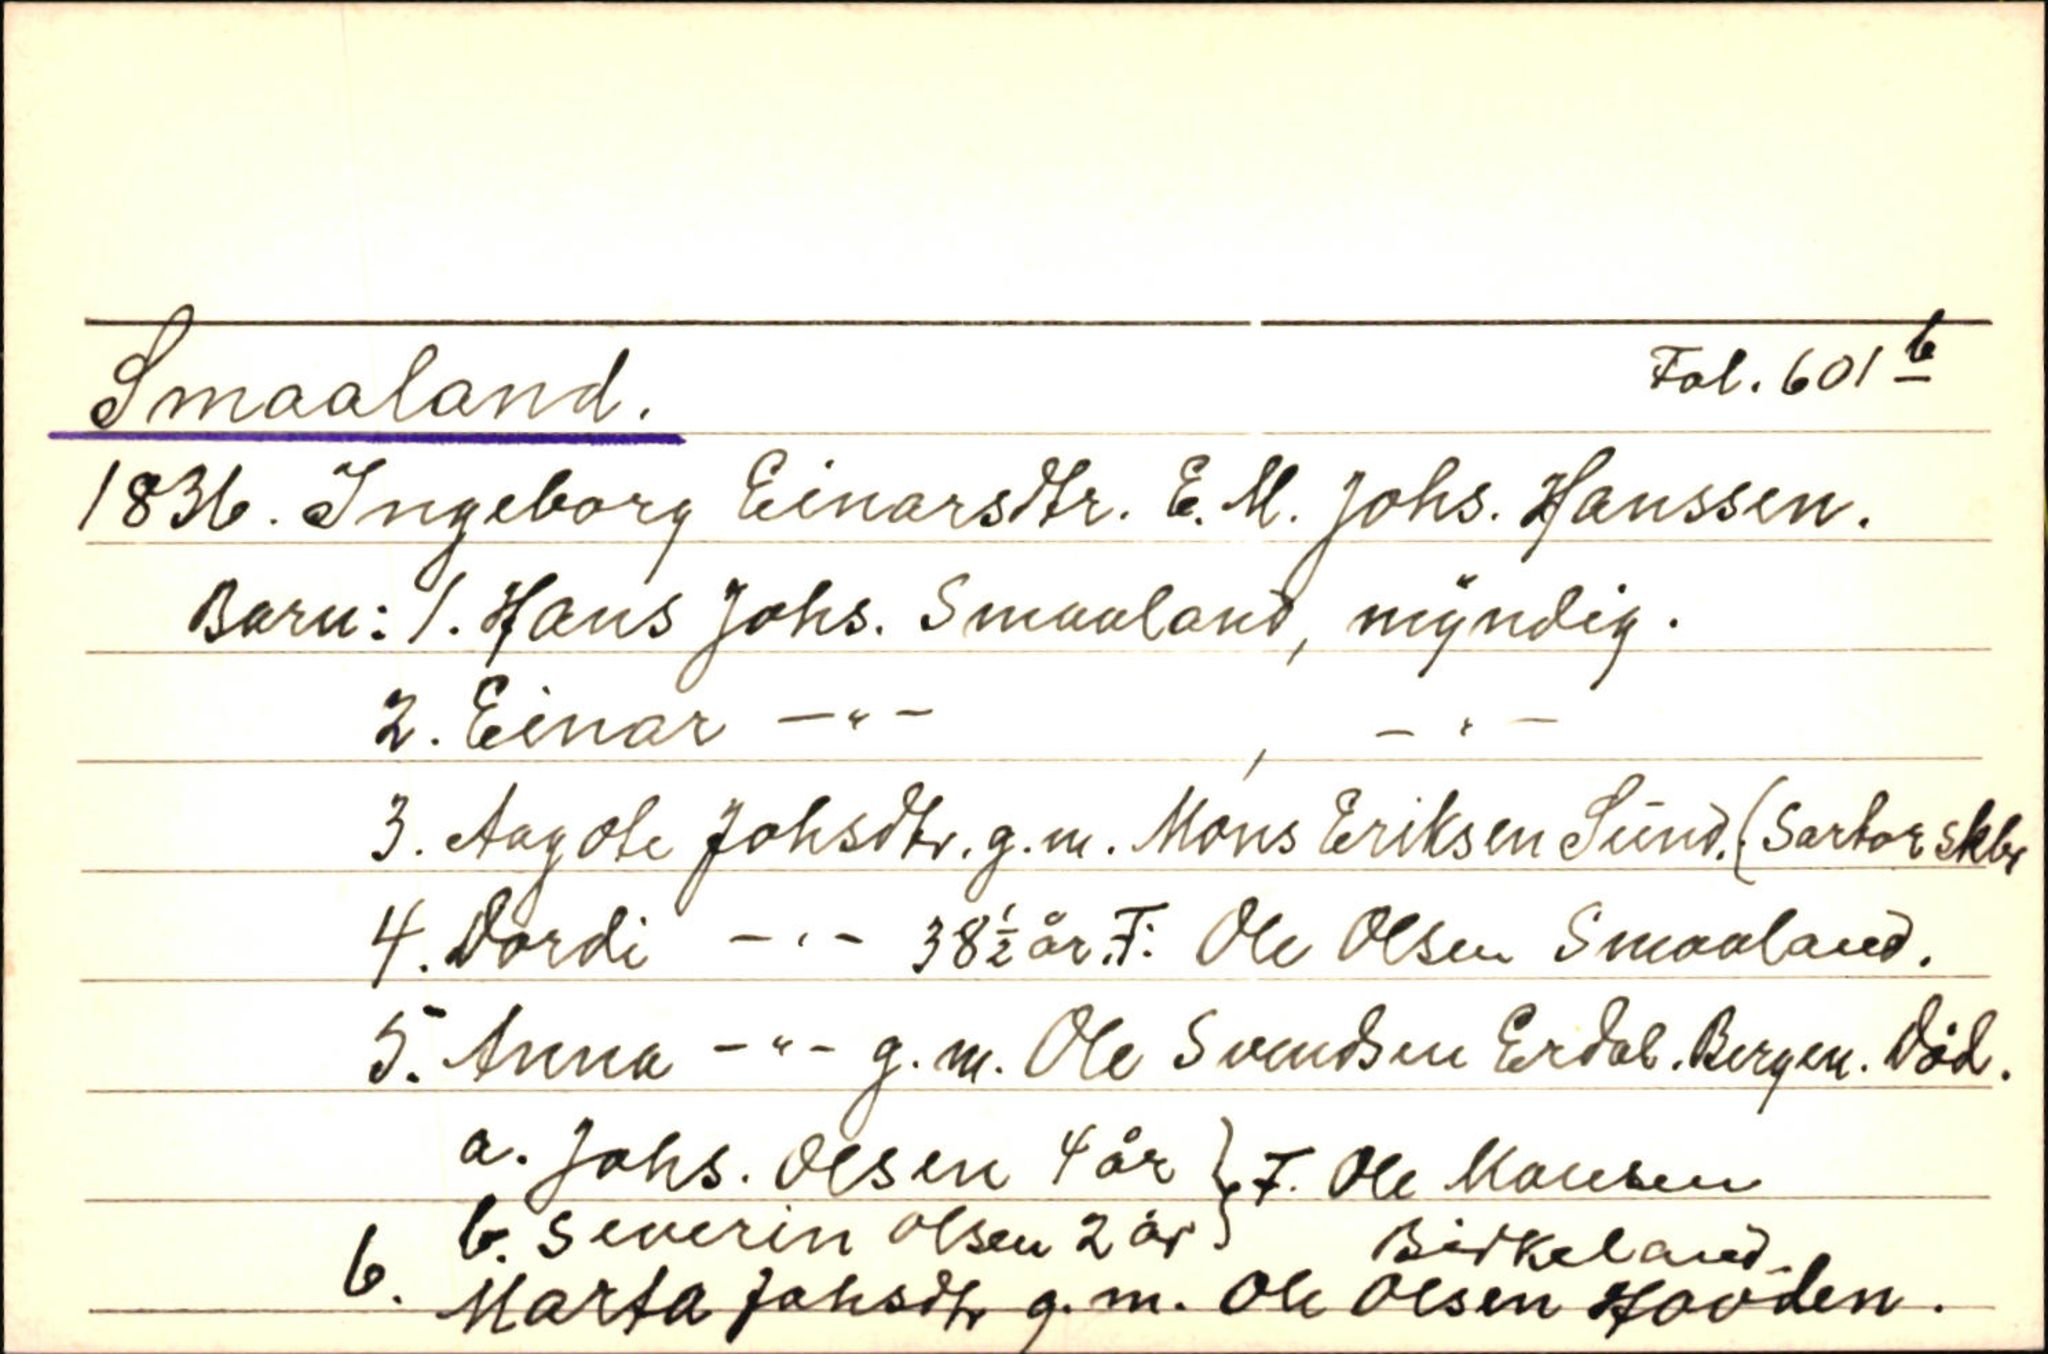 Smaaland. Fol. 601 b
1836. Ingeborg Einarsdtr. E. M. Johs. Hanssen.
Barn: 1. Hans Johs. Smaaland, mÿndig.
2. Einar -"- , -"-
3. Aagote Johsdtr. g.m. Mons Eriksen Sund. (Sartor skbr
4. Dordi -"- 38½ år. F: Ole Olsen Smaaland.
5. Anna -"- g. m. Ole Svendsen Erdal. Bergen. Död.
a. Johs. Olsen 4 år } F. Ole Monsen
b. Severin Olsen 2 år } Birkeland.
6. Marta Johsdtr g. m. Ole Olsen Hovden.